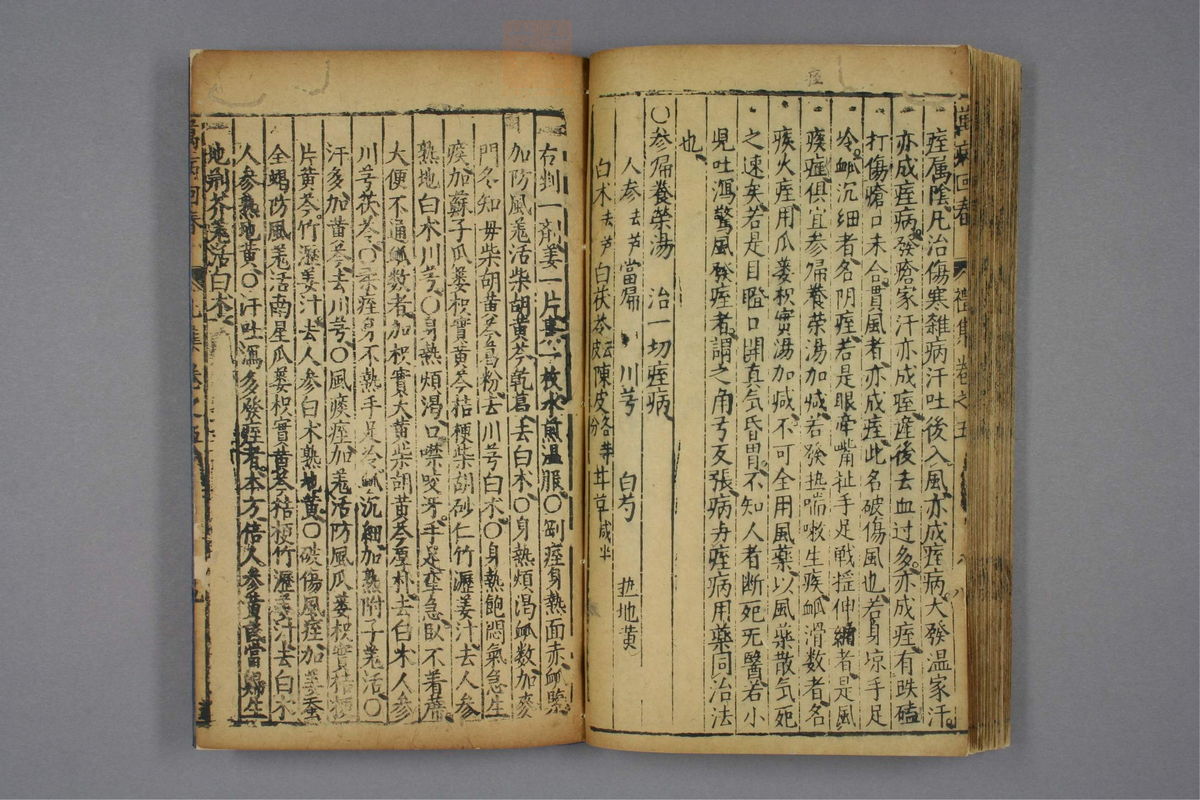 痓
痓属陰凡治傷寒雜病汗吐後入風亦成痓病大發温家汗
亦成痓病發瘡家汗亦成痓產後去血过多亦成痓有跌磕
打傷瘡口未合貫風者亦成痓此名破傷風也若身凉手足
冷䘑沉細者名阴痓若是眼牽嘴扯手足戰揺伸縮者是風
痰痓俱宜参㱕養荣湯加减若發热喘嗽生痰䘑滑数者名
痰火痓用瓜蒌枳實湯加减不可全用風藥以風藥散気死
之速矣若是目瞪口開真気昏冒不知人者断死无醫若小
児吐瀉驚風發痓者謂之角弓反張病与痓病用藥同治法
也
〇参㱕養荣湯 治一切痓病
人参去芦 當㱕 川芎 白芍 热地黄
白术去芦 白茯苓去皮 陳皮各等分 甘草减半
右剉一剤姜一片枣一枚水煎温服〇剛痓身熱面赤䘑緊
加防風羌活柴胡黄芩乾葛去白术〇身熱煩渴䘑数加麥
門冬知毋柴胡黄芩昌粉去川芎白术〇身熱飽悶氣急生
痰加蘇子瓜蒌枳實黄芩桔梗柴胡砂仁竹瀝姜汁去人参
熟地白术川芎〇身熱煩渴口噤咬牙手足挛急臥不着蓆
大便不通䘑数者加枳實大黄柴胡黄芩厚朴去白术人参
川芎茯苓〇柔痓身不熱手足冷䘑沉細加熟附子羌活〇
汗多加黄芪去川芎〇風痰痓加羌活防風瓜蒌枳實桔梗
片黄芩竹瀝姜汁去人参白术熟地黄〇破傷風痓加姜蚕
全蝎防風羌活南星瓜蒌枳實黄芩桔梗竹瀝姜汁去白术
人参熟地黄〇汗吐瀉多發痓者本方倍人参黄芪當㱕生
地荆芥羌活白术